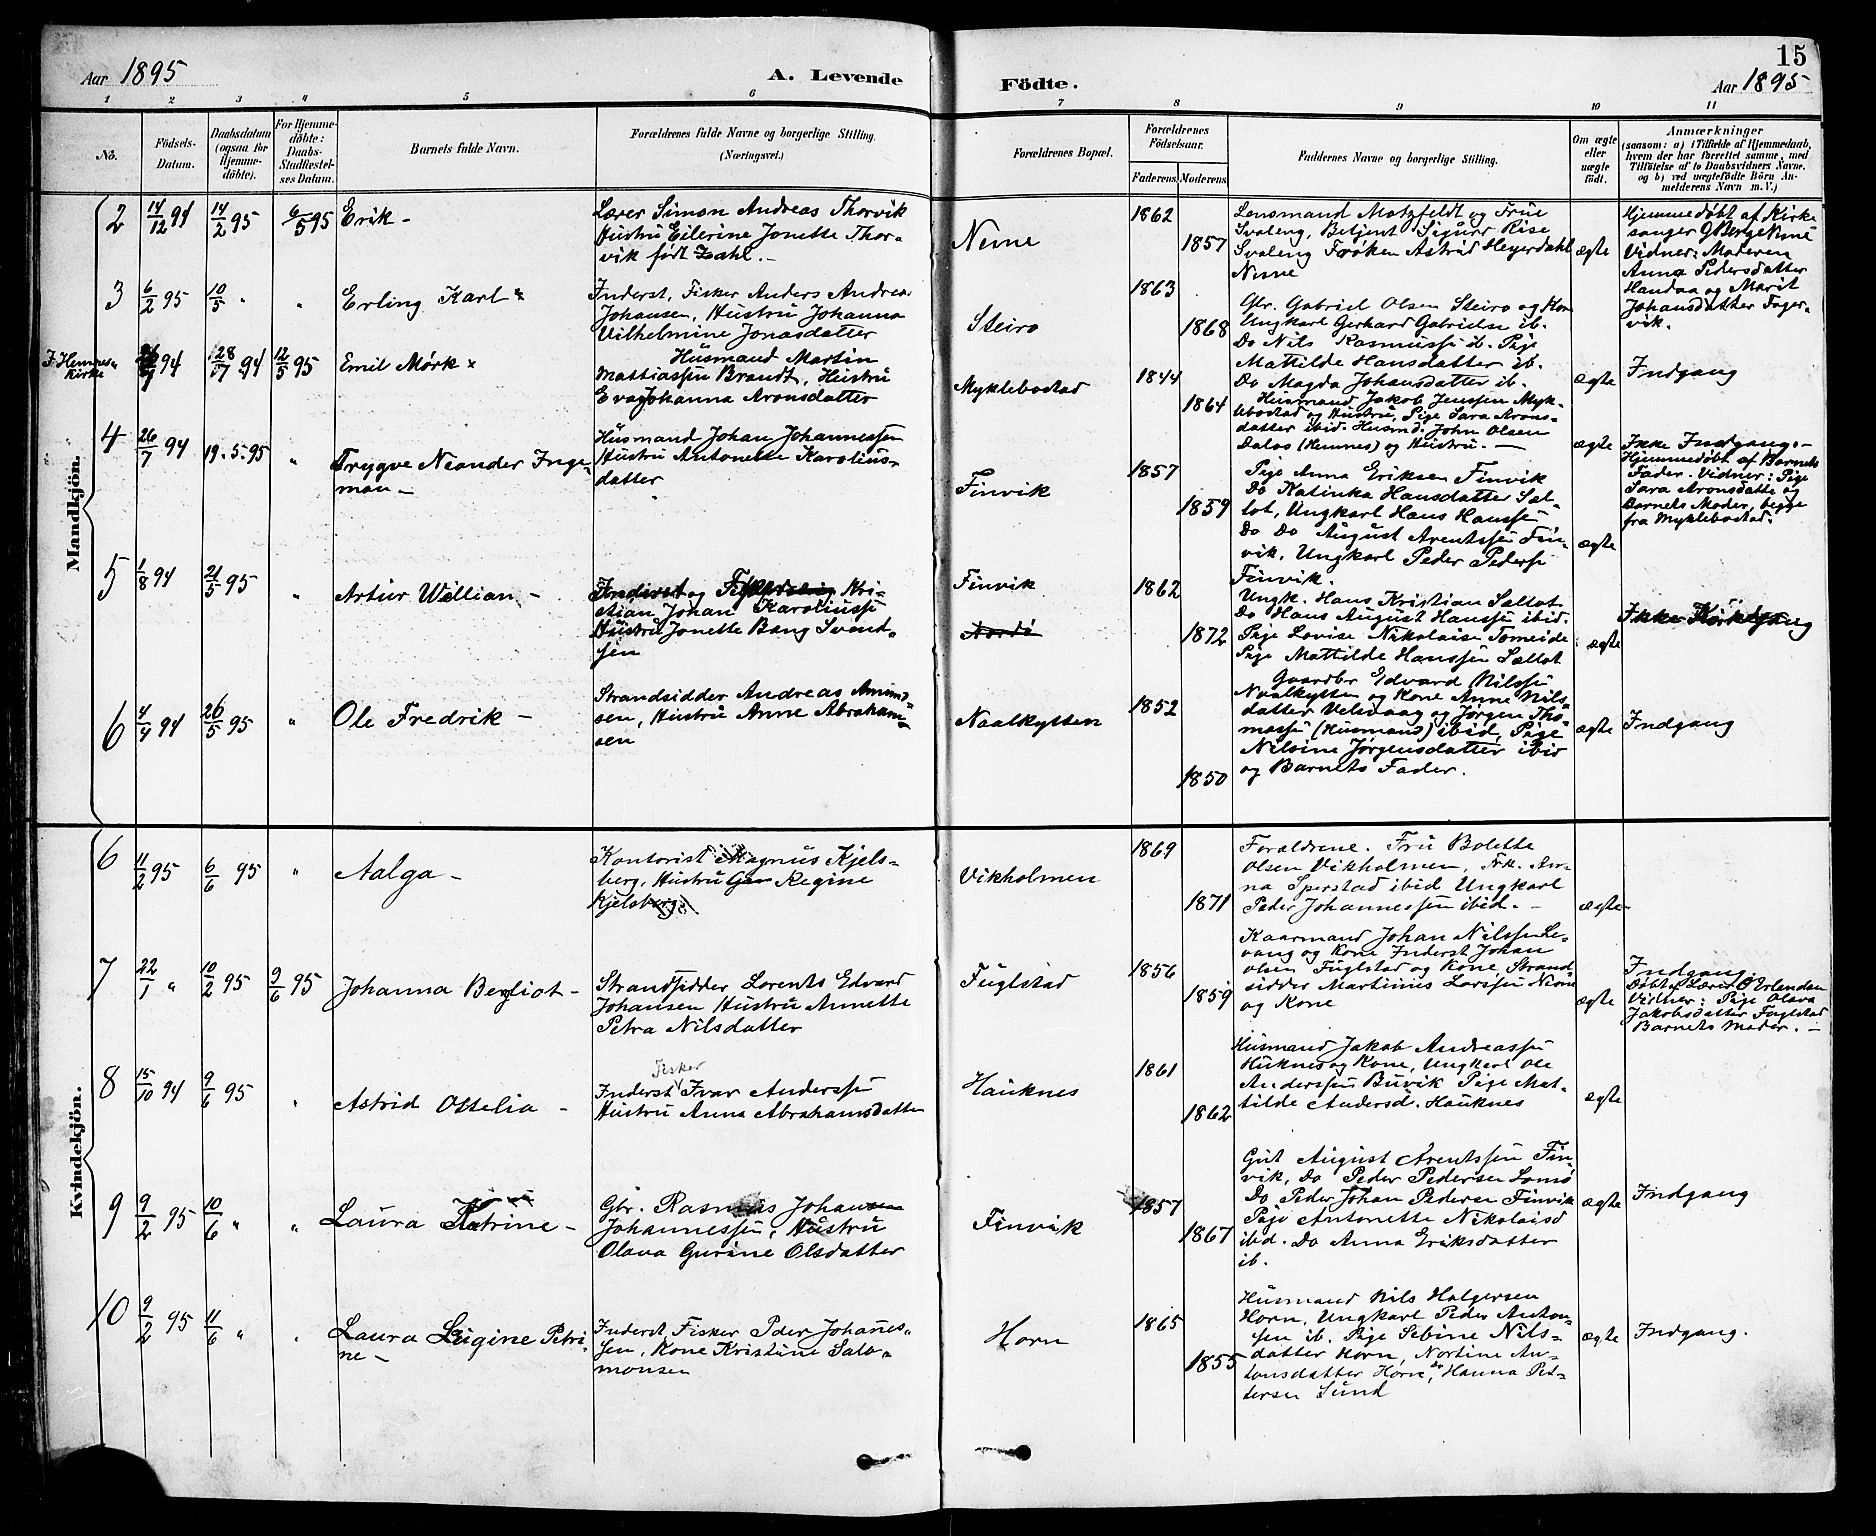 15
Aar 1895
A. Levende
Födte.
Aar 1895
1 2 3 4 5 6 7 8 9 10 11
No.
Födsels-
Datum.
Daabsdatum
(ogsaa for
Hjemme-
döbte).
For Hjemme-
döbte:
Daabs-
Stadfæstel-
ses Datum.
Barnets fulde Navn.
Forældrenes fulde Navne og borgerlige Stilling.
(Næringsvei.)
Forældrenes Bopæl.
Forældrenes
Födselsaar.
Faderens. Moderens.
Faddernes Navne og borgerlige Stilling.
Om ægte
eller
uægte
født.
Anmærkninger
(saasom: a) i Tilfælde af Hjemmedaab,
hvem der har forrettet samme, med
Tilföielse af to Daabsvidners Navne,
og b) ved uægtefödte Börn An-
melderens Navn m. V.)
Mandkjön.
2
14/12 94
14/2 95
6/5 95
Erik -
Lærer Simon Andreas Thorvik
Hustru Eilerine Jonette Thor-
vik født Zahl. -
Nesne
1862
1857
Lensmand Motzfeldt og Frue
Svaleng, Betjent Sigurd Rise
Svaleng Frøken Astrid Heyerdahl
Nesne
ægte
Hjemmedøbt af Kirke
sanger
Vidner: Moderen
Anna Pedersdatter
Handaa og Marit
Johansdatter Fager-
vik.
3
6/2 95
10/5 "
"
Erling Karl
Inderst, Fisker Anders Andreas
Johansen, Hustru Johanna
Vilhelmine Jonasdatter
Steiro
1863
1868
Gbr. Gabriel Olsen Steiro og Kone
Ungkarl Gerhard Gabrielse ib.
Do Nils Rasmusse ib. Pige
Mathilde Hansdatter ib.
Do Magda Johansdatter ib.
ægte
Indgang
I Hemnes
Kirke
94
28/7 94
12/5 95
Emil Mørk
Husmand Martin
Mattiassen Brandt, Hustru
Eva Johanna Aronsdatter
Myklebostad
1844
1864
Husmand Jakob Jenssen Myk-
lebostad og Hustru, Pige Sara Arons-
datter ibid. Husmd. John Olsen
Dalos (Hemnes) og Hustru. -
ægte
Ikke Indgang. -
Hjemmedøbt af Barnets
Fader. Vidner: Pige
Sara Aronsdatte og
Barnets Moder, begge
fra Myklebostad.
4
26/7 94
19.5.95
"
Trygve Neander Inge-
man -
Husmand Johan Johannessen
Hustru Antonette Karolius-
datter
Finvik
1857
1859
Pige Anna Eriksen Finvik
Do Katinka Hansdatter Sæl-
tot, Ungkarl Hans Hanssen
Do Do August Arentssen Fin-
vik. Ungkarl Peder Pederse
Finvik.
ægte
5
1/8 94
21/5 95
"
Artur Willian -
Inderst og Kri-
stian Johan Karoliusse
Hustru Jonette Bang Svend-
sen
Finvik
1862
1872
Ungk. Hans Kristian Sæltot
Do Hans August Hansse ibid.
Pige Lovise Nikolaise Tomeide
Pige Mathilde Hanssen Sæltot
ægte
Ikke
6
4/4 94
26/5 95
"
Ole Fredrik -
Strandsidder Andreas Amund-
sen, Hustru Anne Abraham-
sen
Naalkytten
1852
1850
Gaardbr Edvard Nilsse
Naalkytten og Kone Anne Nils-
datter Velsvaag og Jørgen Tho-
masse (Husmans) ibid, Pige
Nilsine Jørgensdatter ibid
og Barnets Fader.
ægte
Indgang
Kvindekjön.
6
11/2 95
6/6 95
"
Aalga -
Kontorist Magnus Kjels-
berg, Hustru Regine
Kjelsberg
Vikholmen
1869
1871
Forældrene. Fru Bolette
Olsen Vikholmen, Frk. An-
na Sperstad ibid Ungkarl
Peder Johannessen ibid. -
ægte
7
22/1 "
10/2 95
9/6 95
Johanna Bergliot -
Strandsidder Lorents Edvard
Johansen Hustru Annette
Petra Nilsdatter
Fuglstad
1856
1859
Kaarmand Johan Nilssen Le-
vang og Kone Inderst Johan
Olsen Fuglstad og Kone, Strand-
sidder Martinus Larssen Nesne
og Kone
ægte
Indgang.
Døbt af Lærer O Erlandsen
Vidner: Pige Olava
Jakobsdatter Fuglstad
Barnets Moder. -
8
15/10 94
9/6 95
"
Astrid Ottelia -
Fisker
Inderst Ivar Anderssen
Hustru Anna Abrahamsdatter
Hauknes
1861
1862
Husmand Jakob Andreassen
Hauknes og Kone, Ungkarl Ole
Anderssen Buvik Pige Mat-
tilde Andersd. Hauknes
ægte
9
9/2 95
10/6 "
"
Laura Katrine -
Gbr. Rasmus Johan
Johannessen, Hustru
Olava Gurine Olsdatter
Finvik
1857
1867
Gut August Arentssen Fin-
vik, Do Peder Pedersen
Do Peder Johan Pedersen Finvik
Pige Antonette Nikolaisd
ibid. Do Anna Eriksdatter
ib.
ægte
Indgang
10
9/2 95
11/6 "
"
Laura Lugine Petri-
ne -
Inderst, Fisker Peder Johanes-
sen, Kone Kristine Salo-
monsen
Horn
1865
1855
Husmand Nils Holgersen
Horn, Ungkarl Peder Anton-
sen ib. Pige Sebine Nils-
datter Horn, Nortine An-
tonsdatter Horn, Do Hanna Ped-
ersen Sund
ægte
Indgang.